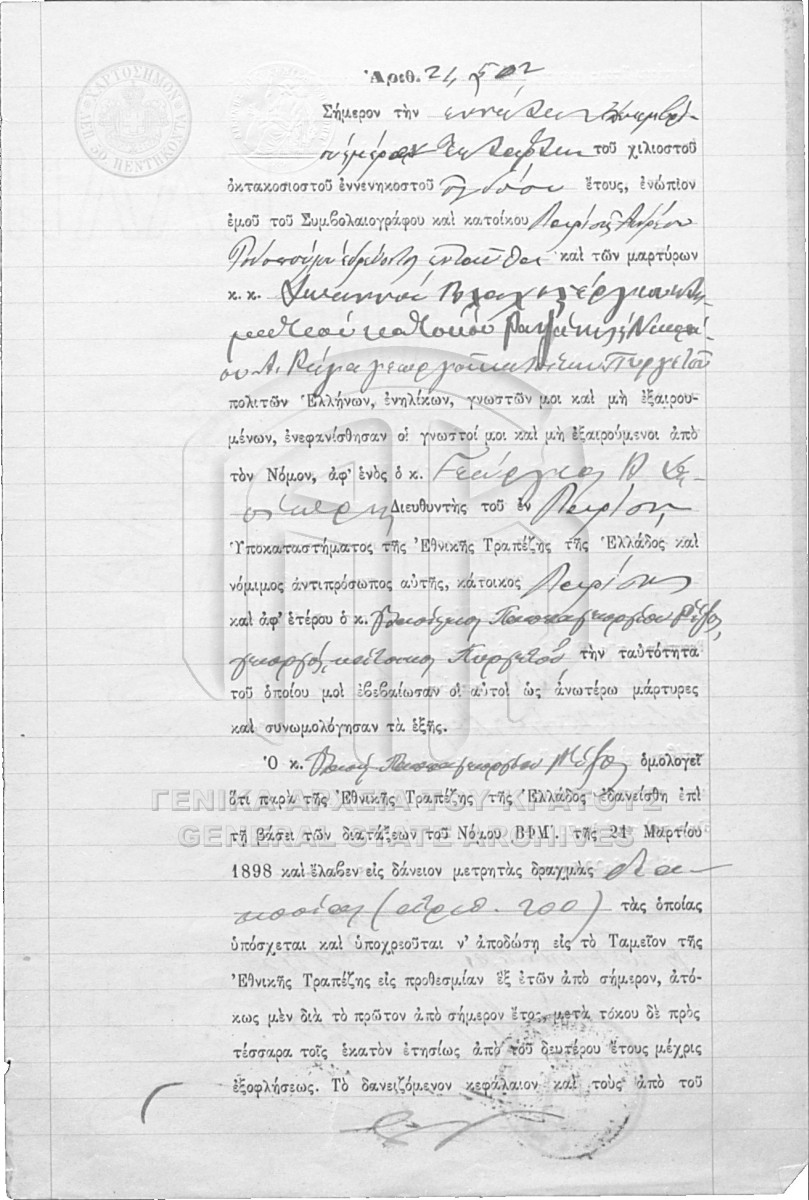 ΧΑΡΤΟΣΗΜΟΝ
ΛΕΠ. 50 ΠΕΝΤΗΚΟΝΤΑ
Ἀριθ. 21,502
Σήμερον τὴν ἐννάτην
ἡμέραν Τετάρτην τοῦ χιλιοστοῦ
ὀκτακοσιοστοῦ ἐννενηκοστοῦ ὀγδόου ἔτους, ἐνώπιον
ἐμοῦ τοῦ Συμβολαιογράφου καὶ κατοίκου Λαρίσης Ἀνδρέου
ἐνταῦθα καὶ τῶν μαρτύρων
κ. κ. Ἰωάννου
κατοίκου
γεωργοῦ κατοίκου Πυργετοῦ
πολιτῶν Ἑλλήνων, ἐνηλίκων, γνωστῶν μοι καὶ μὴ ἐξαιρου-
μένων, ἐνεφανίσθησαν οἱ γνωστοί μοι καὶ μὴ ἐξαιρούμενοι ἀπὸ
τὸν Νόμον, ἀφ' ἑνὸς ὁ κ. Γεώργιος
Διευθυντὴς τοῦ ἐν Λαρίσῃ
Ὑποκαταστήματος τῆς Ἐθνικῆς Τραπέζης τῆς Ἑλλάδος καὶ
νόμιμος ἀντιπρόσωπος αὐτῆς, κάτοικος Λαρίσης
καὶ ἀφ' ἑτέρου ὁ κ. Παπαγεωργίου
γεωργός, κάτοικος Πυργετοῦ τὴν ταὐτότητα
τοῦ ὁποίου μοὶ ἐβεβαίωσαν οἱ αὐτοὶ ὡς ἀνωτέρω μάρτυρες
καὶ συνωμολόγησαν τὰ ἑξῆς.
Ὁ κ. Παπαγεωργίου ὁμολογεῖ
ΓΕΝΙΚΑ ΑΡΧΕΙΑ ΤΟΥ ΚΡΑΤΟΥΣ
ὅτι παρὰ τῆς Ἐθνικῆς Τραπέζης τῆς Ἑλλάδος ἐδανείσθη ἐπὶ
GENERAL STATE ARCHIVES
τῇ βάσει τῶν διατάξεων τοῦ Νόμου ΒΦΜ΄. τῆς 21 Μαρτίου
1898 καὶ ἔλαβεν εἰς δάνειον μετρητὰς δραχμὰς δια-
κοσίας (ἀριθ. 200) τὰς ὁποίας
ὑπόσχεται καὶ ὑποχρεοῦται ν' ἀποδώσῃ εἰς τὸ Ταμεῖον τῆς
Ἐθνικῆς Τραπέζης εἰς προθεσμίαν ἓξ ἐτῶν ἀπὸ σήμερον, ἀτό-
κως μὲν διὰ τὸ πρῶτον ἀπὸ σήμερον ἔτος, μετὰ τόκου δὲ πρὸς
τέσσαρα τοῖς ἑκατὸν ἐτησίως ἀπὸ τοῦ δευτέρου ἔτους μέχρις
ἐξοφλήσεως. Τὸ δανειζόμενον κεφάλαιον καὶ τοὺς ἀπὸ τοῦ